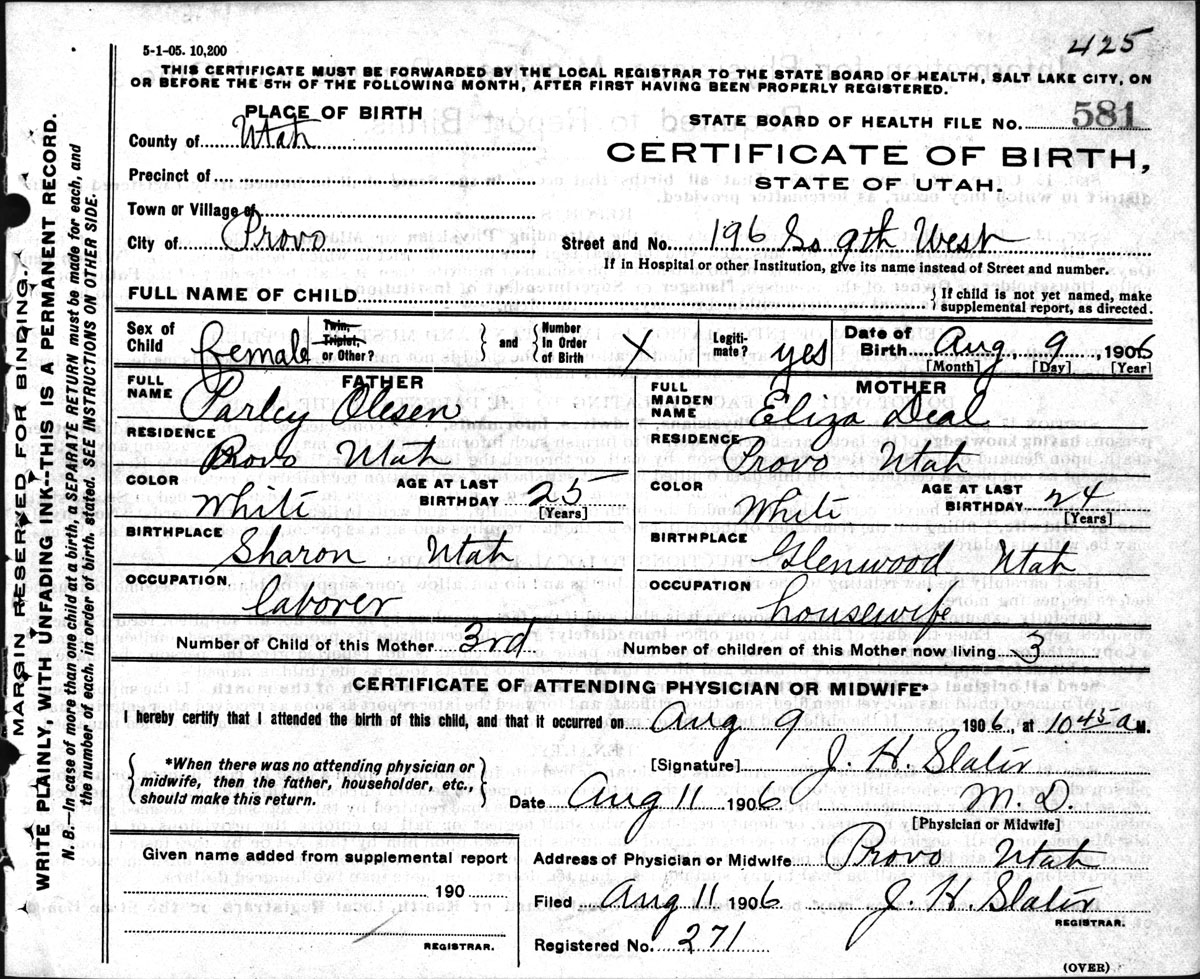 425
5-1-05. 10,200
THIS CERTIFICATE MUST BE FORWARDED BY THE LOCAL REGISTRAR TO THE STATE BOARD OF HEALTH, SALT LAKE CITY, ON
OR BEFORE THE 5TH OF THE FOLLOWING MONTH, AFTER FIRST HAVING BEEN PROPERLY REGISTERED.
PLACE OF BIRTH
STATE BOARD OF HEALTH FILE No. 581
County of Utah
CERTIFICATE OF BIRTH,
STATE OF UTAH.
Precinct of
Town or Village of
City of Provo
Street and No. 196 So 9th West
If in Hospital or other Institution, give its name instead of Street and number.
FULL NAME OF CHILD
{ If child is not yet named, make
supplemental report, as directed.
Sex of Child female
Twin, Triplet, or Other?
} and {
Number In Order of Birth
Legiti-mate? yes
Date of Birth Aug. 9, 1906
[Month] [Day] [Year]
FATHER
FULL NAME Parley Olesen
RESIDENCE
Provo Utah
COLOR White
AGE AT LAST BIRTHDAY 25
[Years]
BIRTHPLACE
Sharon Utah
OCCUPATION
laborer
MOTHER
FULL MAIDEN NAME Eliza Deal
RESIDENCE
Provo Utah
COLOR White
AGE AT LAST BIRTHDAY 24
[Years]
BIRTHPLACE
Glenwood Utah
OCCUPATION
housewife
Number of Child of this Mother 3rd
Number of children of this Mother now living 3
CERTIFICATE OF ATTENDING PHYSICIAN OR MIDWIFE*
I hereby certify that I attended the birth of this child, and that it occurred on Aug 9 1906, at 10 45 a M.
{ *When there was no attending physician or
midwife, then the father, householder, etc.,
should make this return. }
[Signature] J. H. Slater
Date Aug 11 1906 M. D.
[Physician or Midwife]
Given name added from supplemental report
190
REGISTRAR.
Address of Physician or Midwife Provo Utah
Filed Aug 11 1906 J. H. Slater
REGISTRAR.
Registered No. 271
(OVER)
MARGIN RESERVED FOR BINDING.
WRITE PLAINLY, WITH UNFADING INK--THIS IS A PERMANENT RECORD.
N. B.—In case of more than one child at a birth, a SEPARATE RETURN must be made for each, and
the number of each, in order of birth, stated. SEE INSTRUCTIONS ON OTHER SIDE.